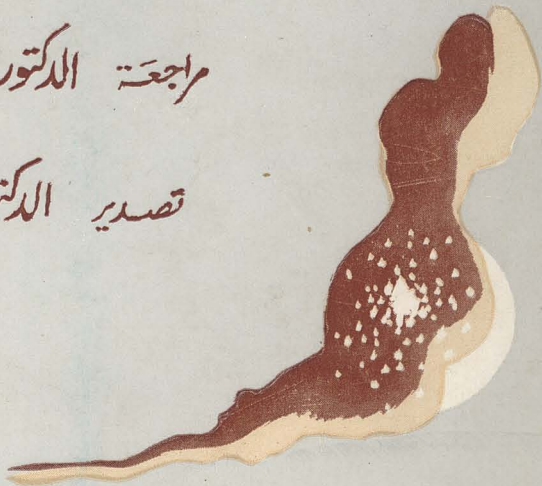 مراجعَة الدكتور
تصدير الدكتو